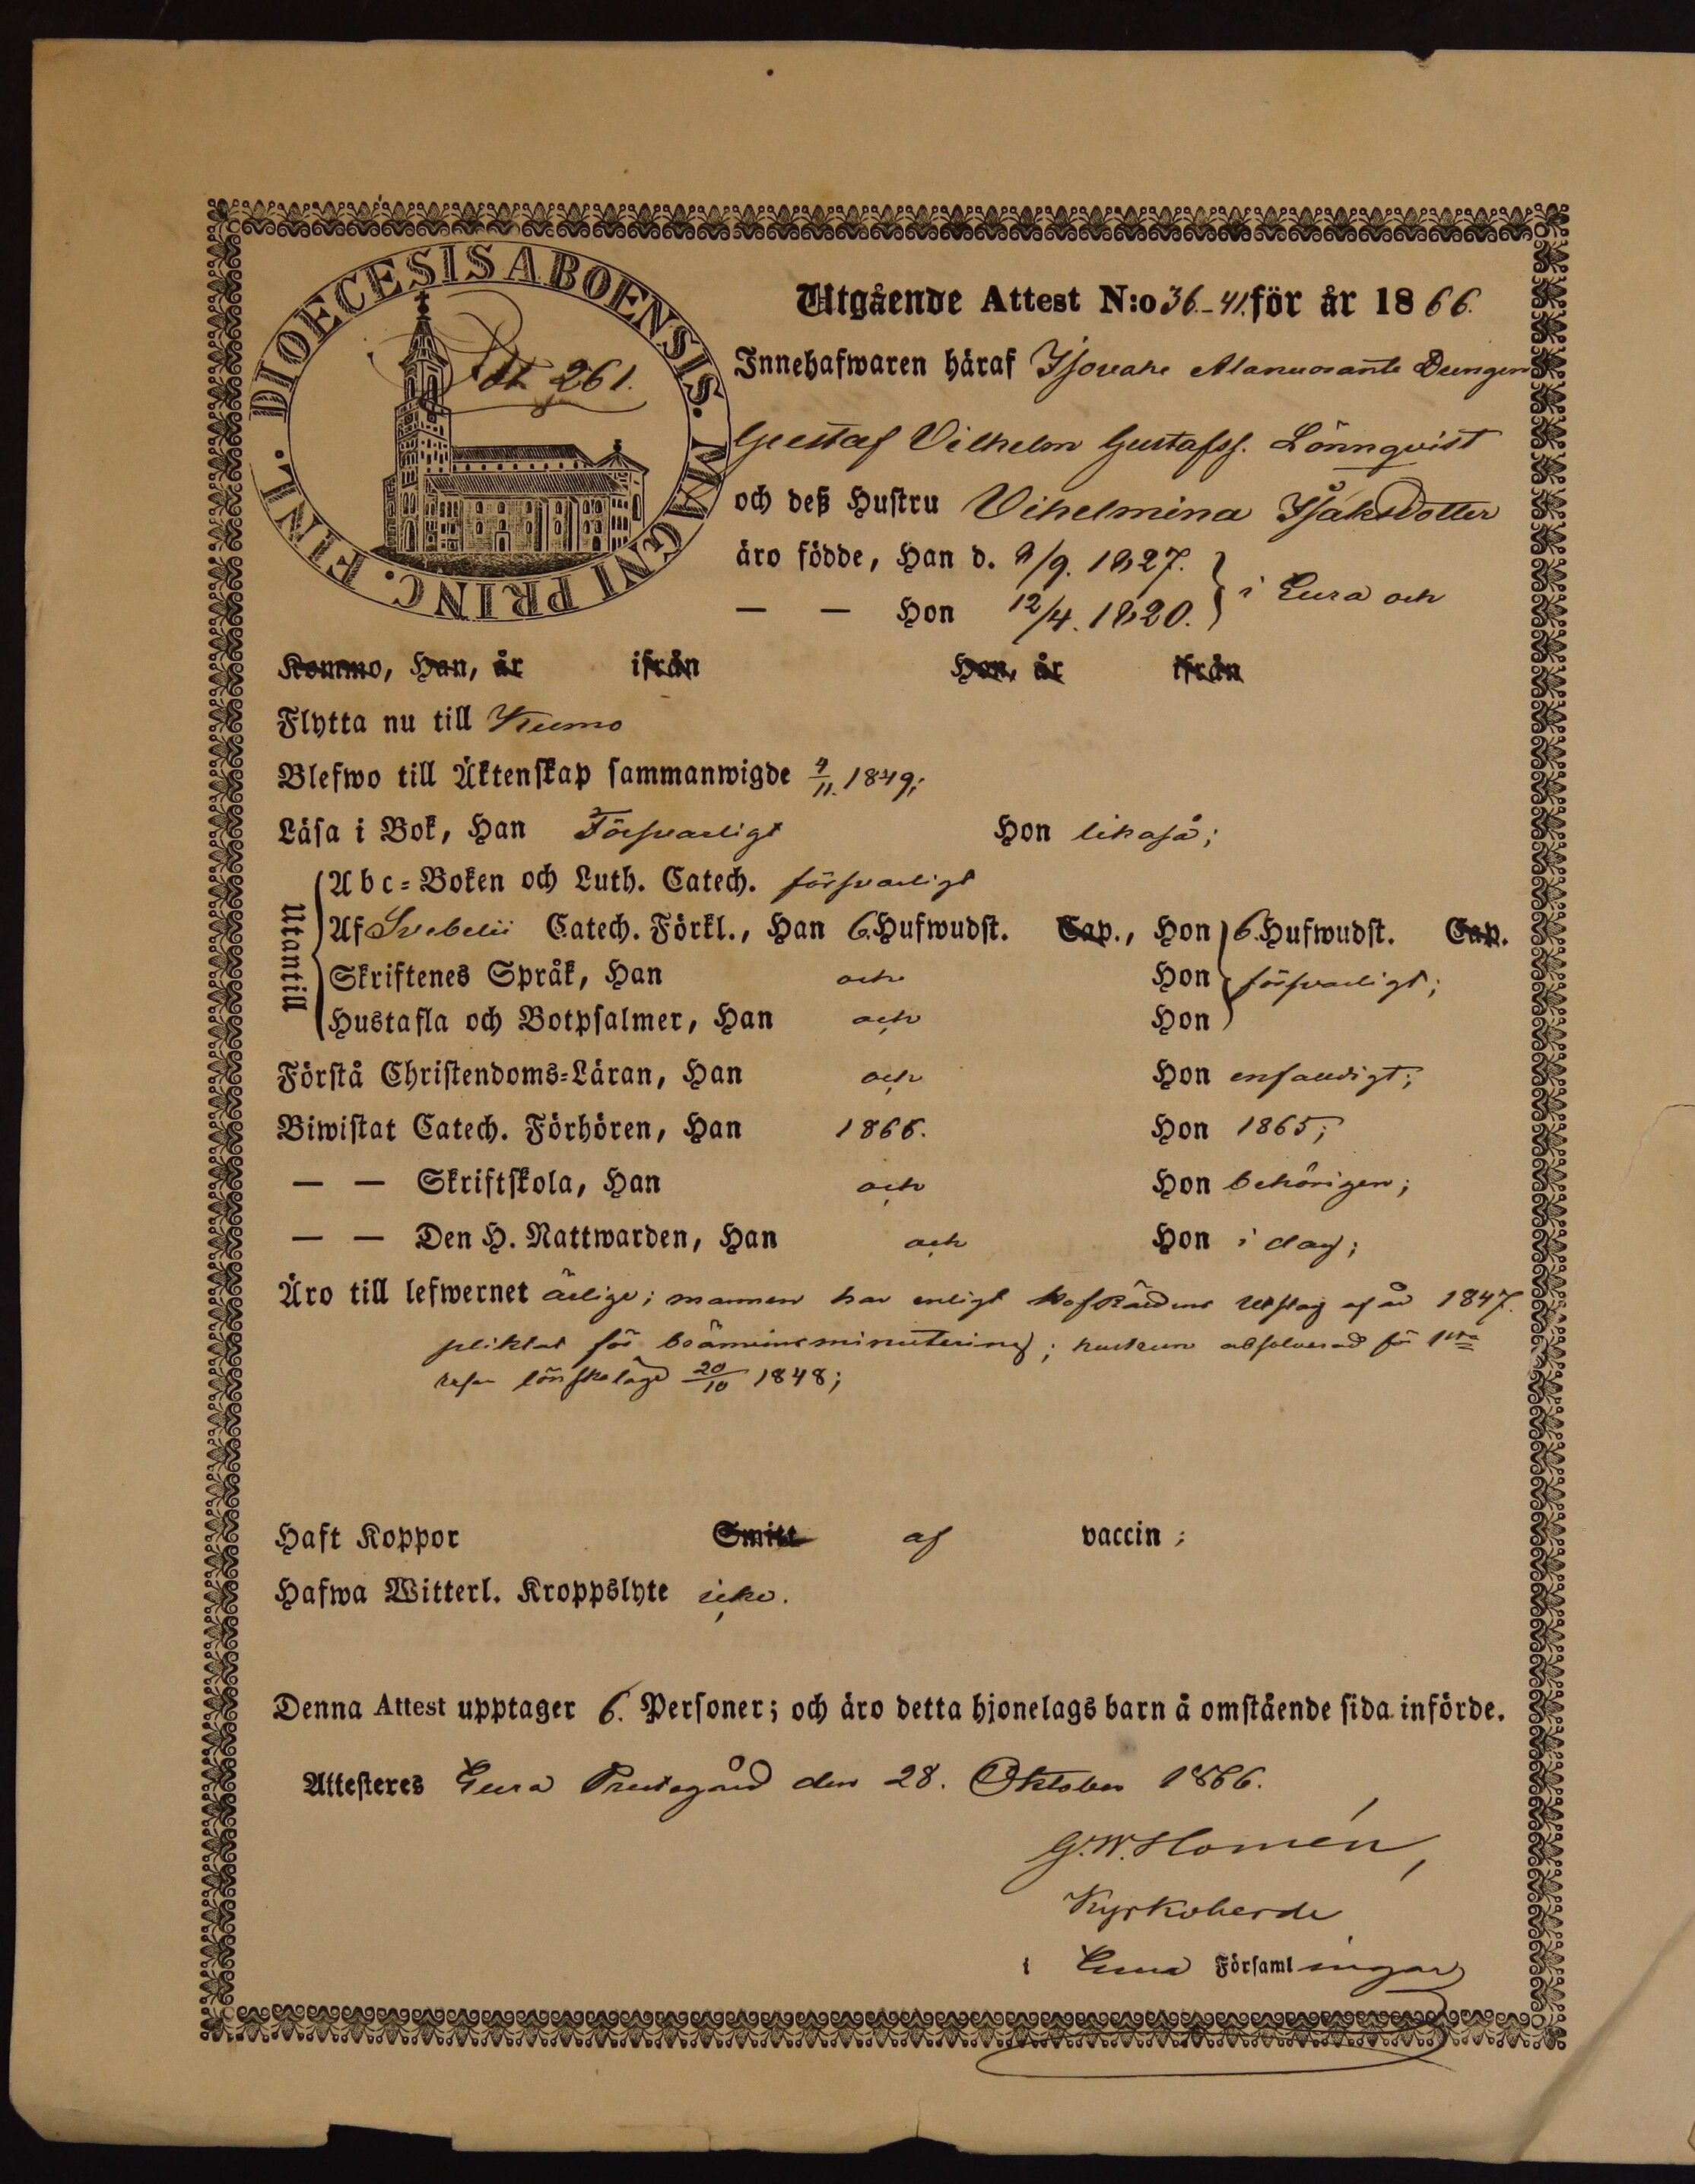 DIOECESIS ABOENSIS. MAGNI PRINC. FINL.
Pdt 261.
Utgående Attest N:o 36.-41. för år 1866.
Innehafwaren häraf Isovahe Alanuosante Drengen
Gustaf Vilhelm Gustafss. Lönnqvist
och deß Hustru Vihelmina Isaksdotter
äro födde, Han d. 9/9. 1827.
— — Hon 12/4. 1820. } i Eura och
Kommo, Han, år ifrån Hon, år ifrån
Flytta nu till Kumo
Blefwo till Äktenskap sammanwigde 4/11. 1849;
Läsa i Bok, Han Försvarligt Hon likaså;
Utantill
Abc=Boken och Luth. Catech. försvarligt
Af Svebelii Catech. Förkl., Han 6. Hufwudst. Cap., Hon 6. Hufwudst. Cap.
Skriftenes Språk, Han och Hon försvarligt;
Hustafla och Botpsalmer, Han och Hon
Förstå Christendoms=Läran, Han och Hon enfaldigt;
Biwistat Catech. Förhören, Han 1866. Hon 1865;
— — Skriftskola, Han och Hon behörigen;
— — Den H. Nattwarden, Han och Hon i dag;
Äro till lefwernet ärlige; mannen har enligt HofRättens Utslag af år 1847.
pliktat för bränvinsminutering; hustrun absolverad för 1sta
resan lönskaläge 20/10 1848;
Haft Koppor Smitt af vaccin;
Hafwa Witterl. Kroppslyte icke.
Denna Attest upptager 6. Personer; och äro detta hjonelags barn å omstående sida införde.
Attesteres Eura Prestegård den 28. Oktober 1866.
G. W. Homén,
Kyrkoherde
i Eura Församlingar